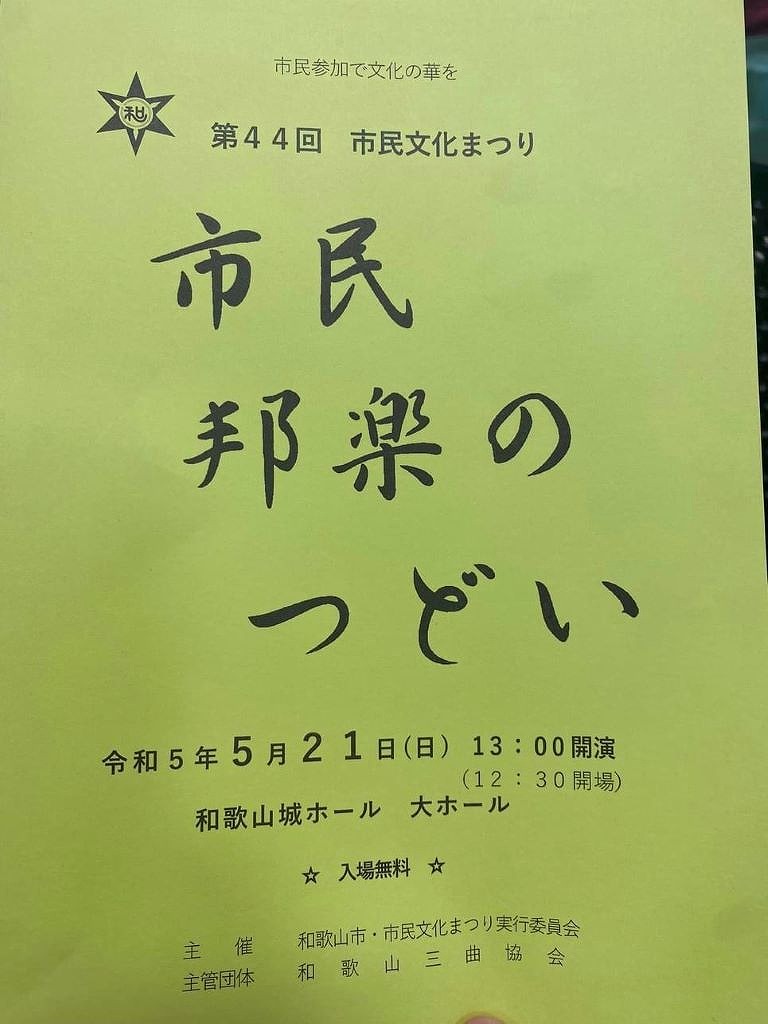 市民参加で文化の華を
第44回 市民文化まつり
市民
邦楽の
つどい
令和5年5月21日(日) 13:00開演
(12:30開場)
和歌山城ホール 大ホール
☆ 入場無料 ☆
主催 和歌山市・市民文化まつり実行委員会
主管団体 和歌山三曲協会